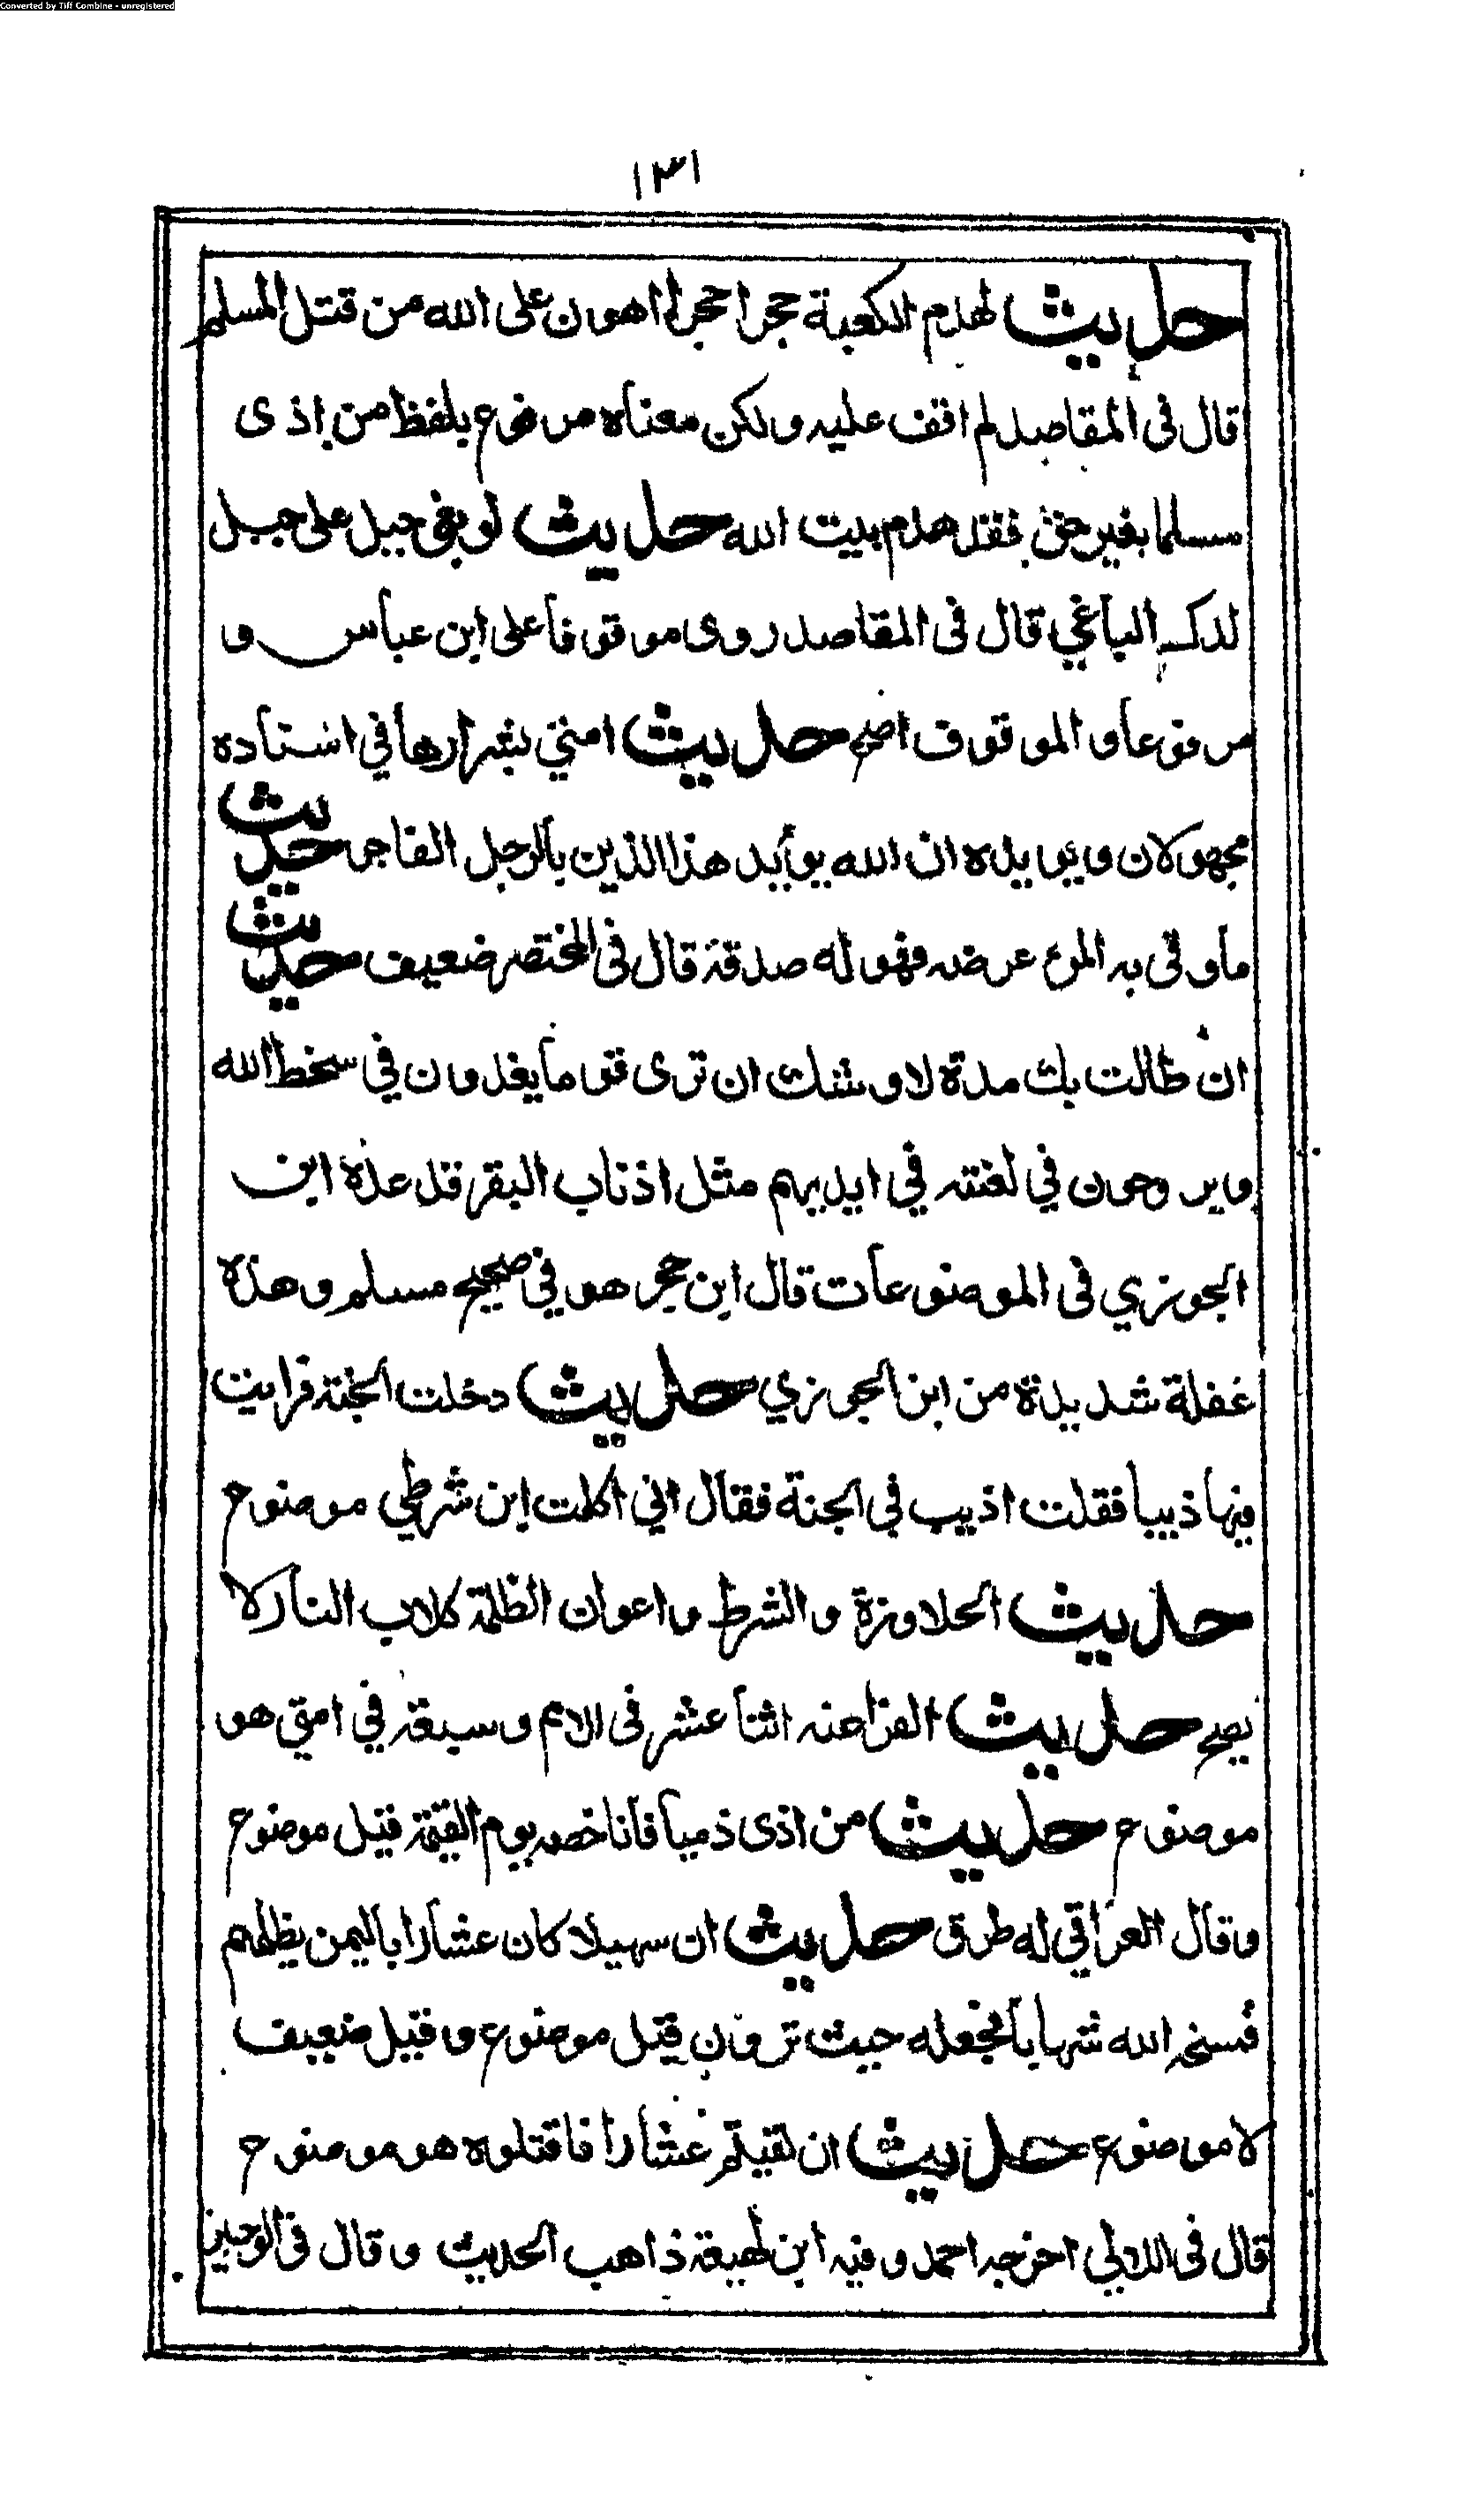 Converted by Tiff Combine - unregistered
١٣١
حديث لهدم الكعبة حجرا حجرا اهون على الله من قتل المسلم
قال في المقاصد لم اقف عليه ولكن معناه مرفوع بلفظ من اذى
مسلما بغير حق فقد هدم بيت الله حديث لو بغى جبل على جبل
لدك الباغي قال في المقاصد روى موقوفا على ابن عباس و
مرفوعا والموقوف اصح حديث امتي بشرارها في اسناده
مجهولان ويويده ان الله يؤيد هذا الدين بالرجل الفاجر حديث
ما وقى به المرء عرضه فهو له صدقة قال في المختصر ضعيف حديث
ان طالت بك مدة لاوشك ان ترى قوما يغدون في سخط الله
ويروحون في لعنته في ايديهم مثل اذناب البقر قد عده ابن
الجوزي في الموضوعات قال ابن حجر هو في صحيح مسلم وهذه
غفلة شديدة من ابن الجوزي حديث دخلت الجنة فرايت
فيها ذيبا فقلت اذيب في الجنة فقال اني اكلت ابن شرطي موضوع
حديث الجلاوزة والشرط واعوان الظلمة كلاب النار لا
يصح حديث الفراعنه اثنا عشر في الامم وسبعة في امتي هو
موضوع حديث من اذى ذميا فانا خصمه يوم القيمة قيل موضوع
وقال العراقي له طرق حديث ان سهيلا كان عشارا باليمن يظلمهم
فمسخه الله شهابا فجعله حيث ترون قيل موضوع وقيل ضعيف
لا موضوع حديث ان لقيتم عشارا فاقتلوه هو موضوع
قال في اللالي اخرجه احمد وفيه ابن لهيعة ذاهب الحديث وقال في الوجيز